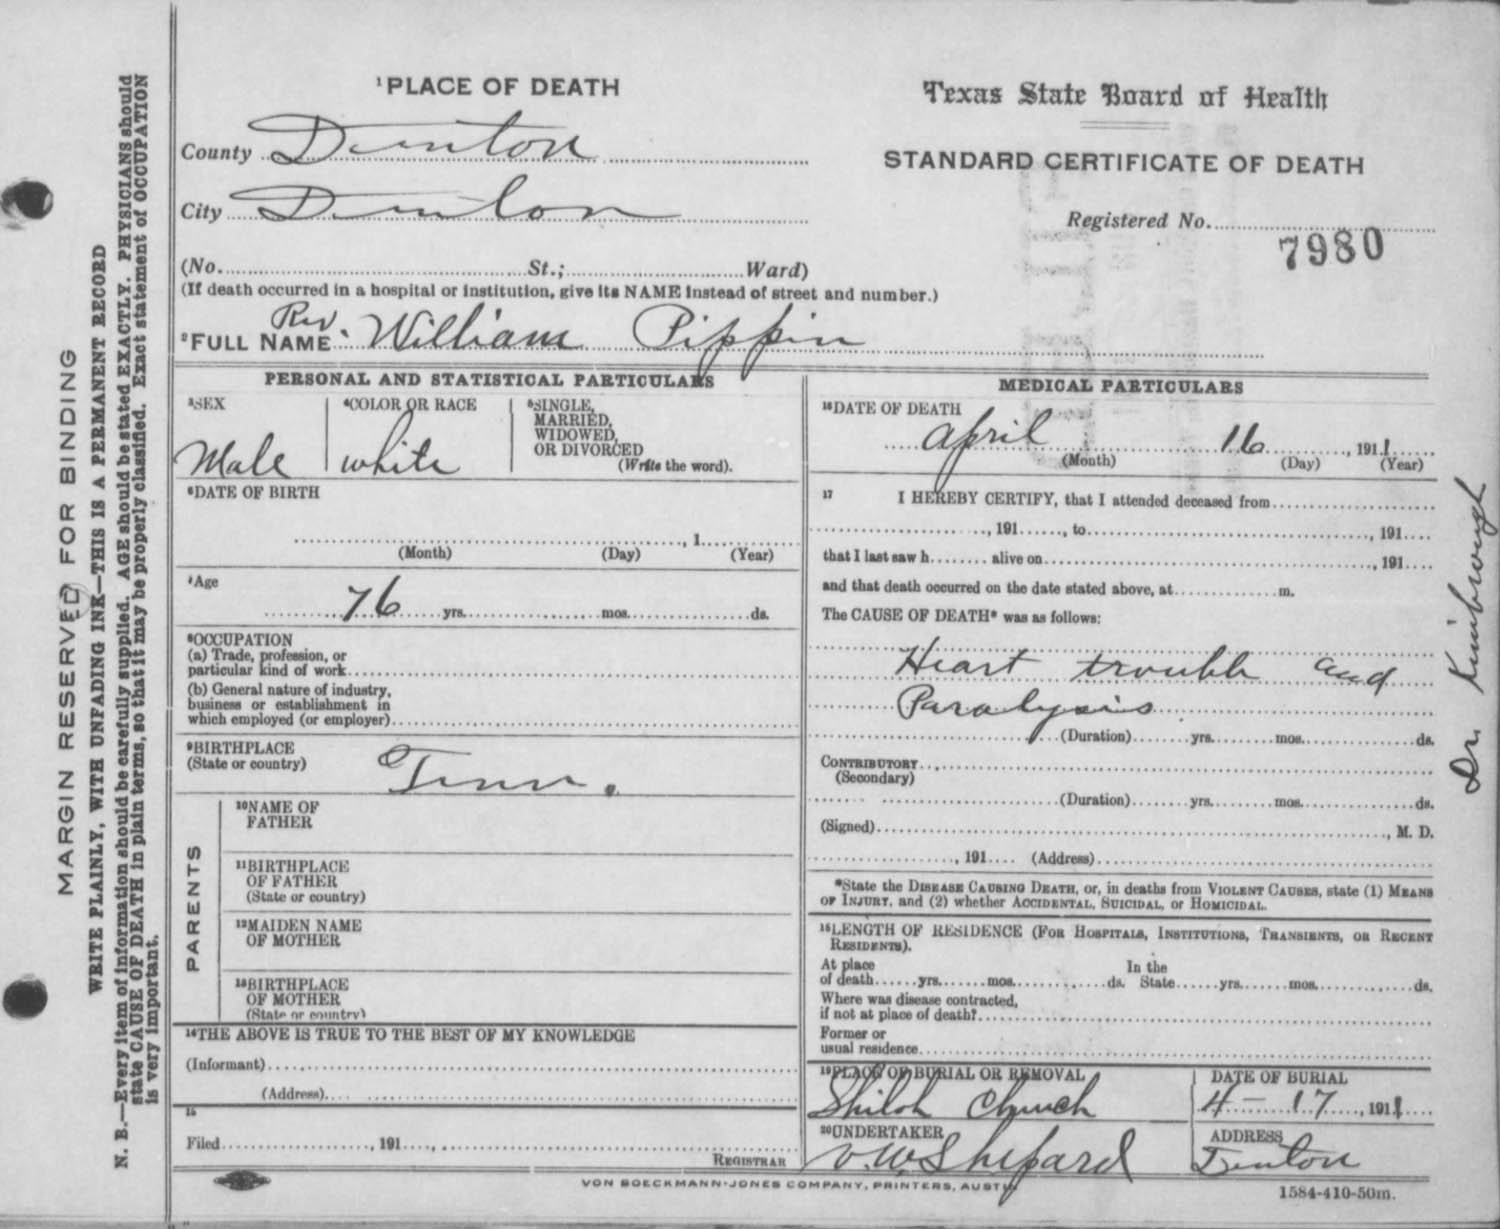 MARGIN RESERVED FOR BINDING
WRITE PLAINLY, WITH UNFADING INK—THIS IS A PERMANENT RECORD
N. B.—Every item of information should be carefully supplied. AGE should be stated EXACTLY. PHYSICIANS should
state CAUSE OF DEATH in plain terms, so that it may be properly classified. Exact statement of OCCUPATION
is very important.
1 PLACE OF DEATH
County Denton
City Denton
(No. St.; Ward)
(If death occurred in a hospital or institution, give its NAME instead of street and number.)
2 FULL NAME Rev. William Pippin
Texas State Board of Health
STANDARD CERTIFICATE OF DEATH
Registered No. 7980
PERSONAL AND STATISTICAL PARTICULARS
3 SEX
Male
4 COLOR OR RACE
White
5 SINGLE,
MARRIED,
WIDOWED,
OR DIVORCED
(Write the word).
6 DATE OF BIRTH
, 1
(Month) (Day) (Year)
7 Age
76 yrs. mos. ds.
8 OCCUPATION
(a) Trade, profession, or
particular kind of work
(b) General nature of industry,
business or establishment in
which employed (or employer)
9 BIRTHPLACE
(State or country) Tenn.
PARENTS
10 NAME OF
FATHER
11 BIRTHPLACE
OF FATHER
(State or country)
12 MAIDEN NAME
OF MOTHER
13 BIRTHPLACE
OF MOTHER
(State or country)
14 THE ABOVE IS TRUE TO THE BEST OF MY KNOWLEDGE
(Informant)
(Address)
15
Filed , 191 ,
REGISTRAR
MEDICAL PARTICULARS
16 DATE OF DEATH
April 16 , 1911
(Month) (Day) (Year)
17 I HEREBY CERTIFY, that I attended deceased from
, 191 , to , 191
that I last saw h alive on , 191
and that death occurred on the date stated above, at m.
The CAUSE OF DEATH* was as follows:
Heart trouble and
Paralysis
(Duration) yrs. mos. ds.
CONTRIBUTORY
(Secondary)
(Duration) yrs. mos. ds.
(Signed) , M. D.
, 191 (Address)
*State the DISEASE CAUSING DEATH, or, in deaths from VIOLENT CAUSES, state (1) MEANS
OF INJURY, and (2) whether ACCIDENTAL, SUICIDAL, or HOMICIDAL.
18 LENGTH OF RESIDENCE (FOR HOSPITALS, INSTITUTIONS, TRANSIENTS, OR RECENT
RESIDENTS).
At place In the
of death yrs. mos. ds. State yrs. mos. ds.
Where was disease contracted,
if not at place of death?
Former or
usual residence
19 PLACE OF BURIAL OR REMOVAL
Shiloh Church
DATE OF BURIAL
4-17, 1911
20 UNDERTAKER
V.W. Shepard
ADDRESS
Denton
Dr. Kimbrough
VON BOECKMANN-JONES COMPANY, PRINTERS, AUSTIN
1584-410-50m.